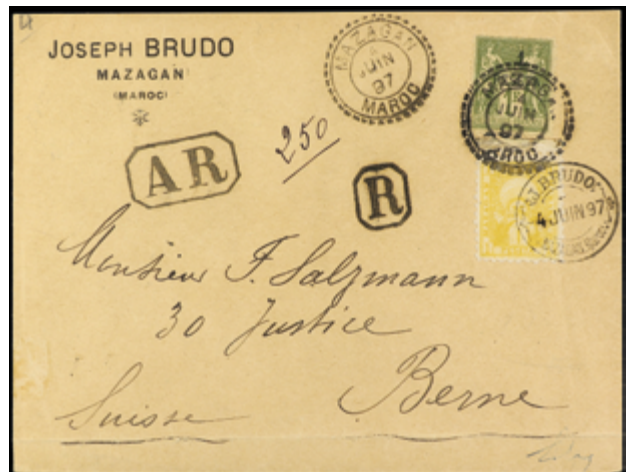 JOSEPH BRUDO
MAZAGAN
(MAROC)
MAZAGAN
4
JUIN
97
MAROC
MAZAGAN
4
JUIN
97
MAROC
250
AR
R
J. BRUDO
4 JUIN 97
Monsieur F. Salzmann
30 Justice
Berne
Suisse